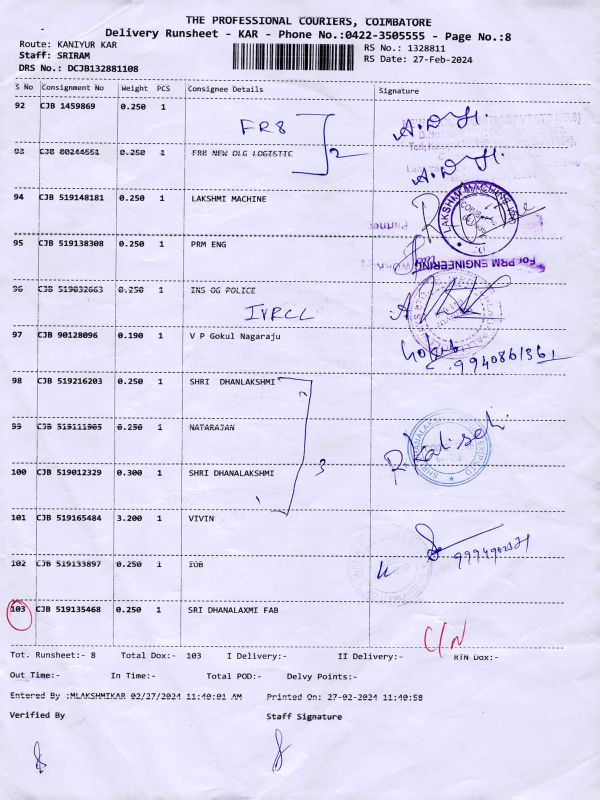 THE PROFESSIONAL COURIERS, COIMBATORE
Delivery Runsheet - KAR - Phone No.:0422-3505555 - Page No.:8
Route: KANIYUR KAR
RS No.: 1328811
Staff: SRIRAM
RS Date: 27-Feb-2024
DRS No.: DCJB132881108
S No Consignment No Weight PCS Consignee Details Signature
92 CJB 1459869 0.250 1
FR8
A.D.
93 CJB 80244551 0.250 1 FR8 NEW DLG LOGISTIC 2
A.D.
94 CJB 519148181 0.250 1 LAKSHMI MACHINE
LAKSHMI MACHINE
Partner
95 CJB 519138308 0.250 1 PRM ENG
For PRM ENGINEERING
96 CJB 519032663 0.250 1 INS OG POLICE
IVRCL
97 CJB 90128096 0.190 1 V P Gokul Nagaraju
Gokul
98 CJB 519216203 0.250 1 SHRI DHANLAKSHMI
99 CJB 519111905 0.250 1 NATARAJAN
100 CJB 519012329 0.300 1 SHRI DHANALAKSHMI 3
101 CJB 519165484 3.200 1 VIVIN
102 CJB 519133897 0.250 1 IOB
103 CJB 519135468 0.250 1 SRI DHANALAXMI FAB
C/N
Tot. Runsheet:- 8 Total Dox:- 103 I Delivery:- II Delivery:- RTN Dox:-
Out Time:- In Time:- Total POD:- Delvy Points:-
Entered By :MLAKSHMIKAR 02/27/2024 11:40:01 AM Printed On: 27-02-2024 11:40:58
Verified By Staff Signature